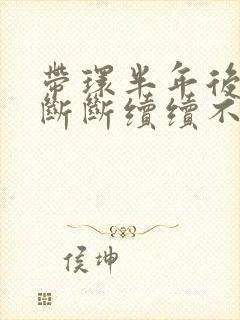 帶環半年後
斷斷續續不
侯坤